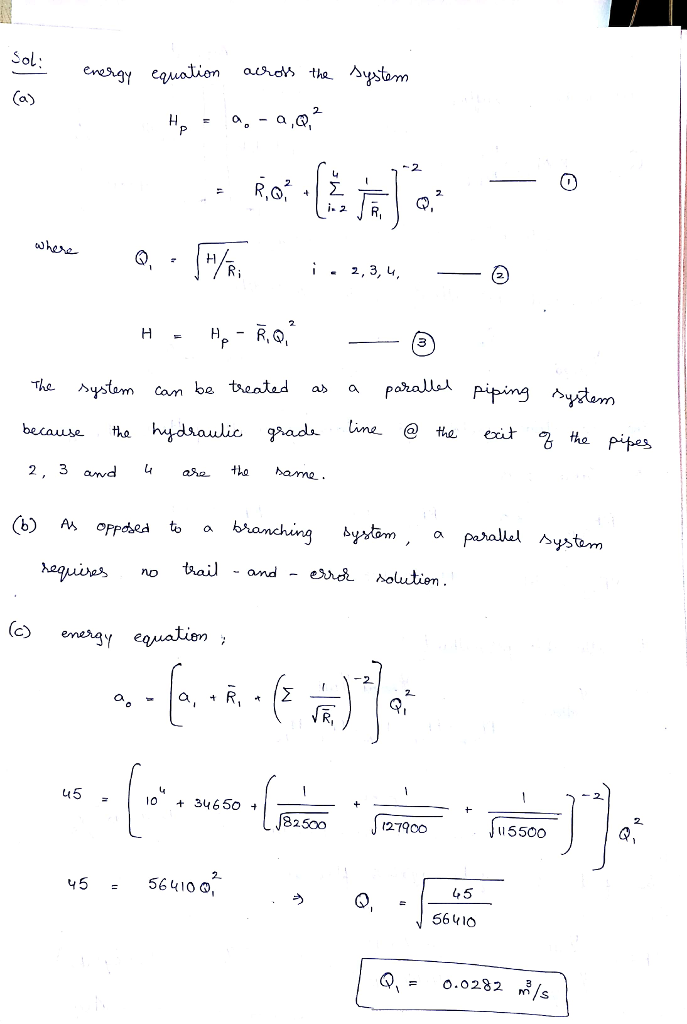 Sol: energy equation across the system
(a)
H_p = a₀ - a₁Q₁²
= R̄₁Q₁² + [Σ_{i=2}^{4} 1/√R̄₁]⁻² Q₁² — ①
where Q₁ = √(H/R̄ᵢ) i = 2,3,4, — ②
H = H_p - R̄₁Q₁² — ③
The system can be treated as a parallel piping system
because the hydraulic grade line @ the exit of the pipes
2, 3 and 4 are the same.
(b) As opposed to a branching system, a parallel system
requires no trail - and - error solution.
(c) energy equation ;
a₀ = [a₁ + R̄₁ + (Σ 1/√R̄₁)⁻²] Q₁²
45 = [10⁴ + 34650 + (1/√82500 + 1/√127900 + 1/√115500)⁻²] Q₁²
45 = 56410 Q₁² ⇒ Q₁ = √(45/56410)
Q₁ = 0.0282 m³/s